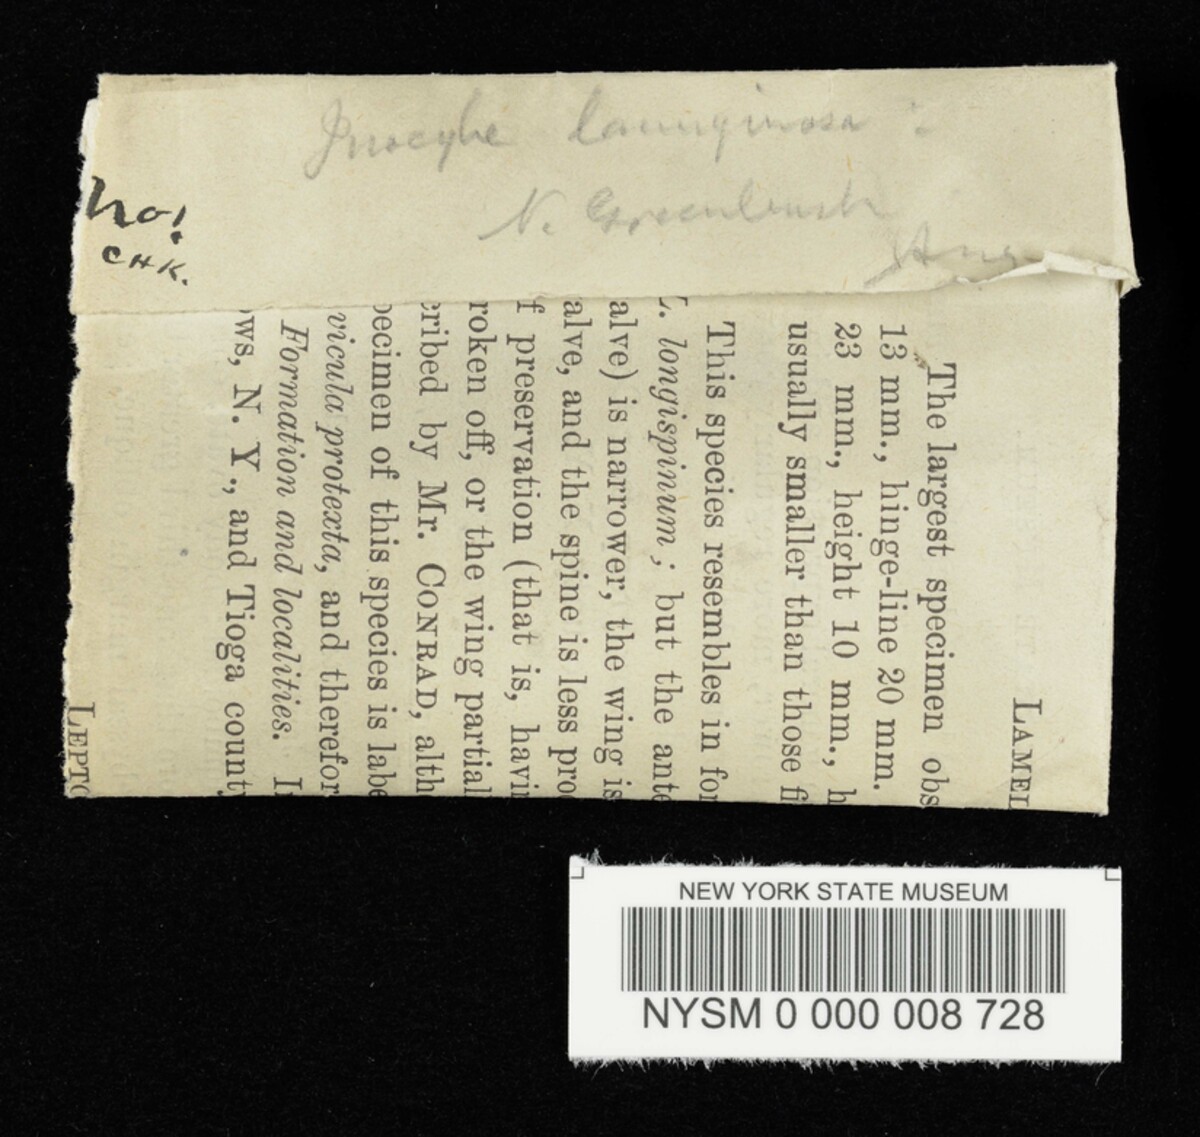 Inocybe lanuginosa
N. Greenbush
Aug
no!
CHK.
LAMEL
The largest specimen obs
13 mm., hinge-line 20 mm.
23 mm., height 10 mm., h
usually smaller than those fi
This species resembles in for
L. longispinum; but the ante
alve) is narrower, the wing is
alve, and the spine is less pro
f preservation (that is, havin
roken off, or the wing partial
cribed by Mr. CONRAD, alth
pecimen of this species is labe
vicula protexta, and therefor
Formation and localities. In
ows, N. Y., and Tioga county
LEPTO
NEW YORK STATE MUSEUM
NYSM 0 000 008 728